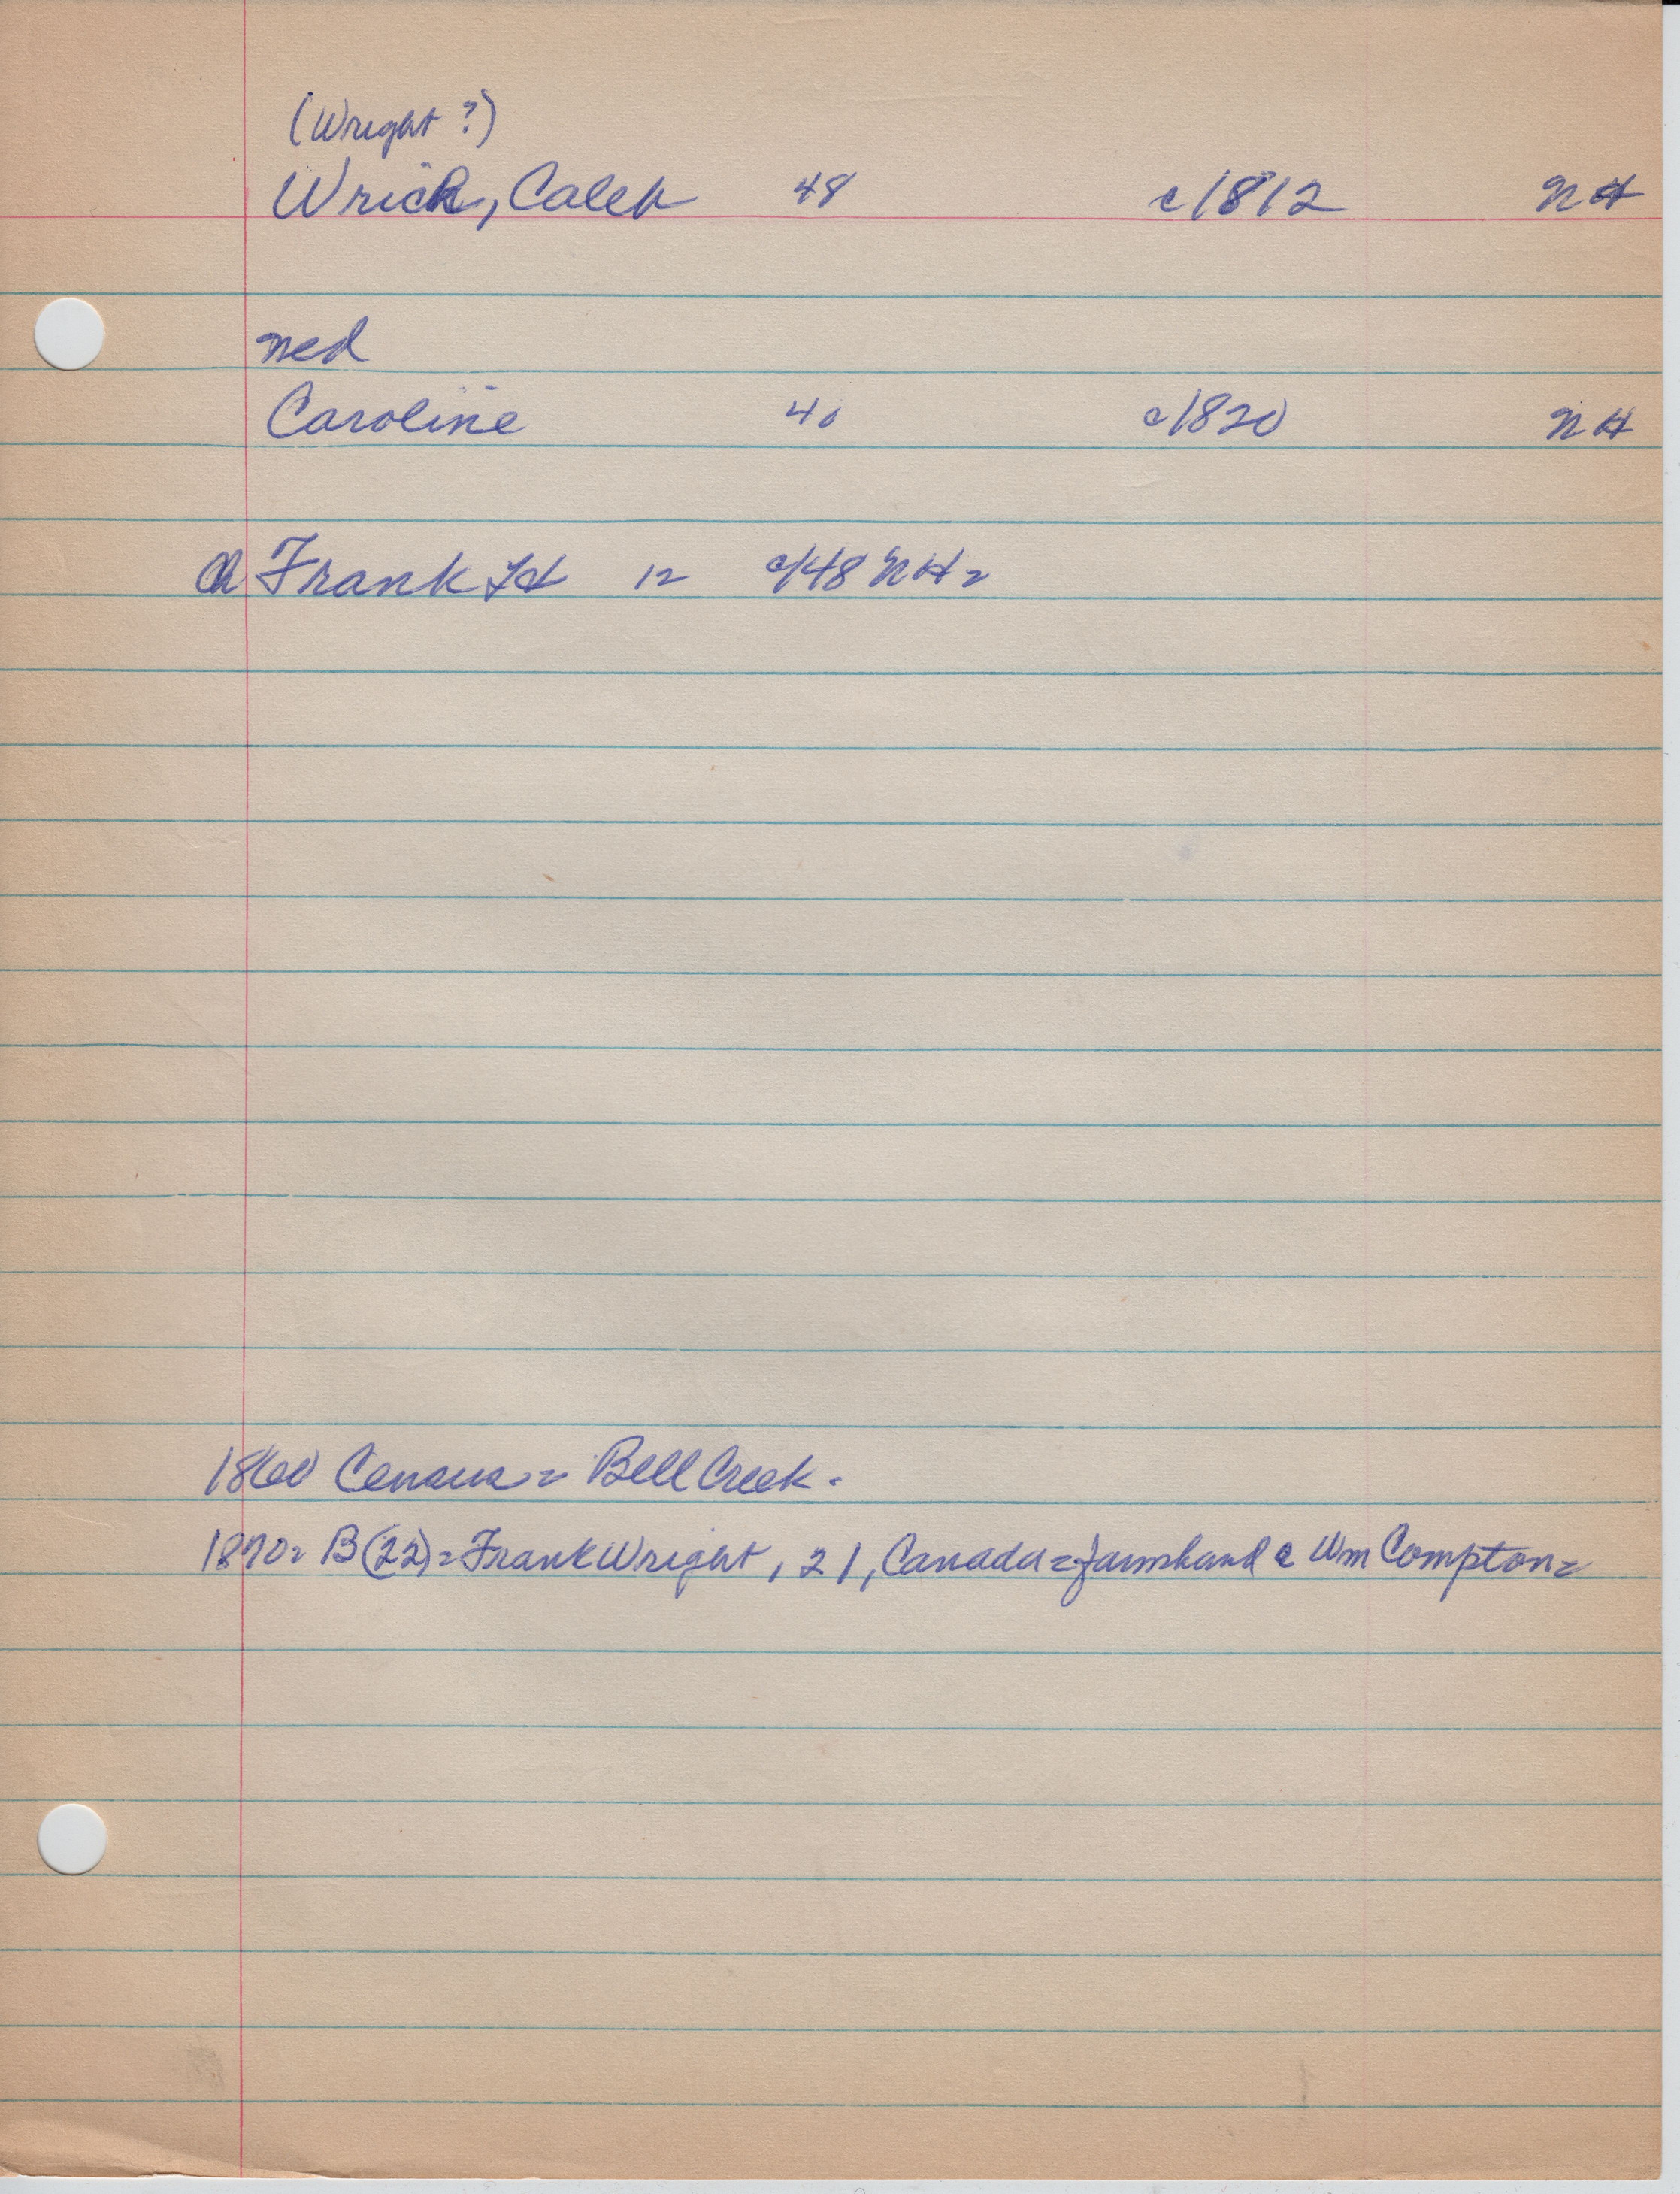 (Wright ?)
Wrick, Caleb 48 c1812 NH
med
Caroline 40 c1820 NH
Ch Frank H 12 c/48 NH=
1860 Census = Bell Creek -
1870= B(22)= Frank Wright, 21, Canada = farmhand c Wm Compton=